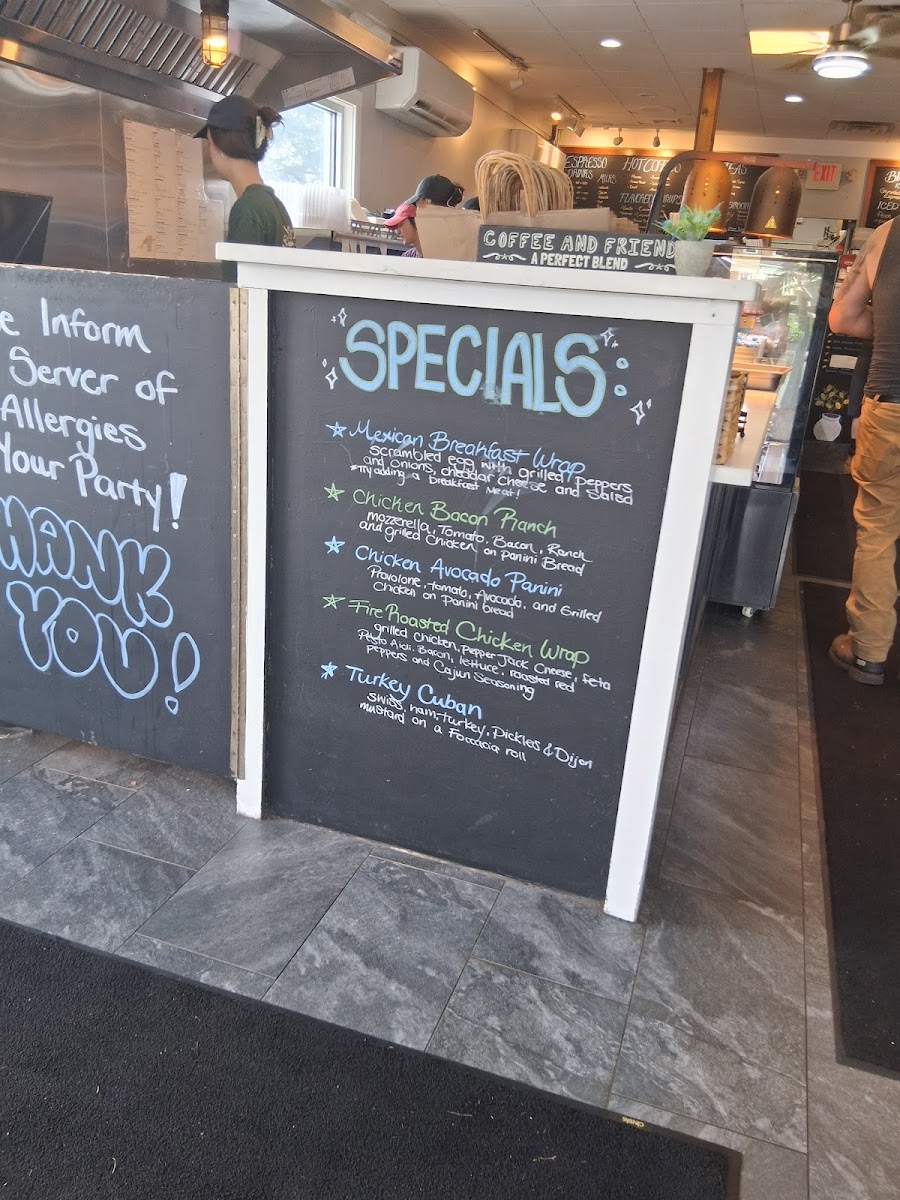 e Inform
Server of
Allergies
Your Party!
HANK
YOU!
ESPRESSO
DRINKS
HOT COFFEE
EXIT
COFFEE AND FRIEND
A PERFECT BLEND
SPECIALS
Mexican Breakfast Wrap
Scrambled egg with grilled peppers
and onions, cheddar cheese and salsa
*Try adding a breakfast meat!
Chicken Bacon Ranch
Mozzerella, Tomato, Bacon, Ranch
and grilled Chicken on panini Bread
Chicken Avocado Panini
Provolone, tomato, Avocado, and Grilled
Chicken on panini bread
Fire Roasted Chicken Wrap
grilled chicken, pepper Jack Cheese, feta
Pesto Aioli, Bacon, lettuce, roasted red
peppers and Cajun Seasoning
Turkey Cuban
Swiss, ham, turkey, Pickles & Dijon
mustard on a Foccacia roll